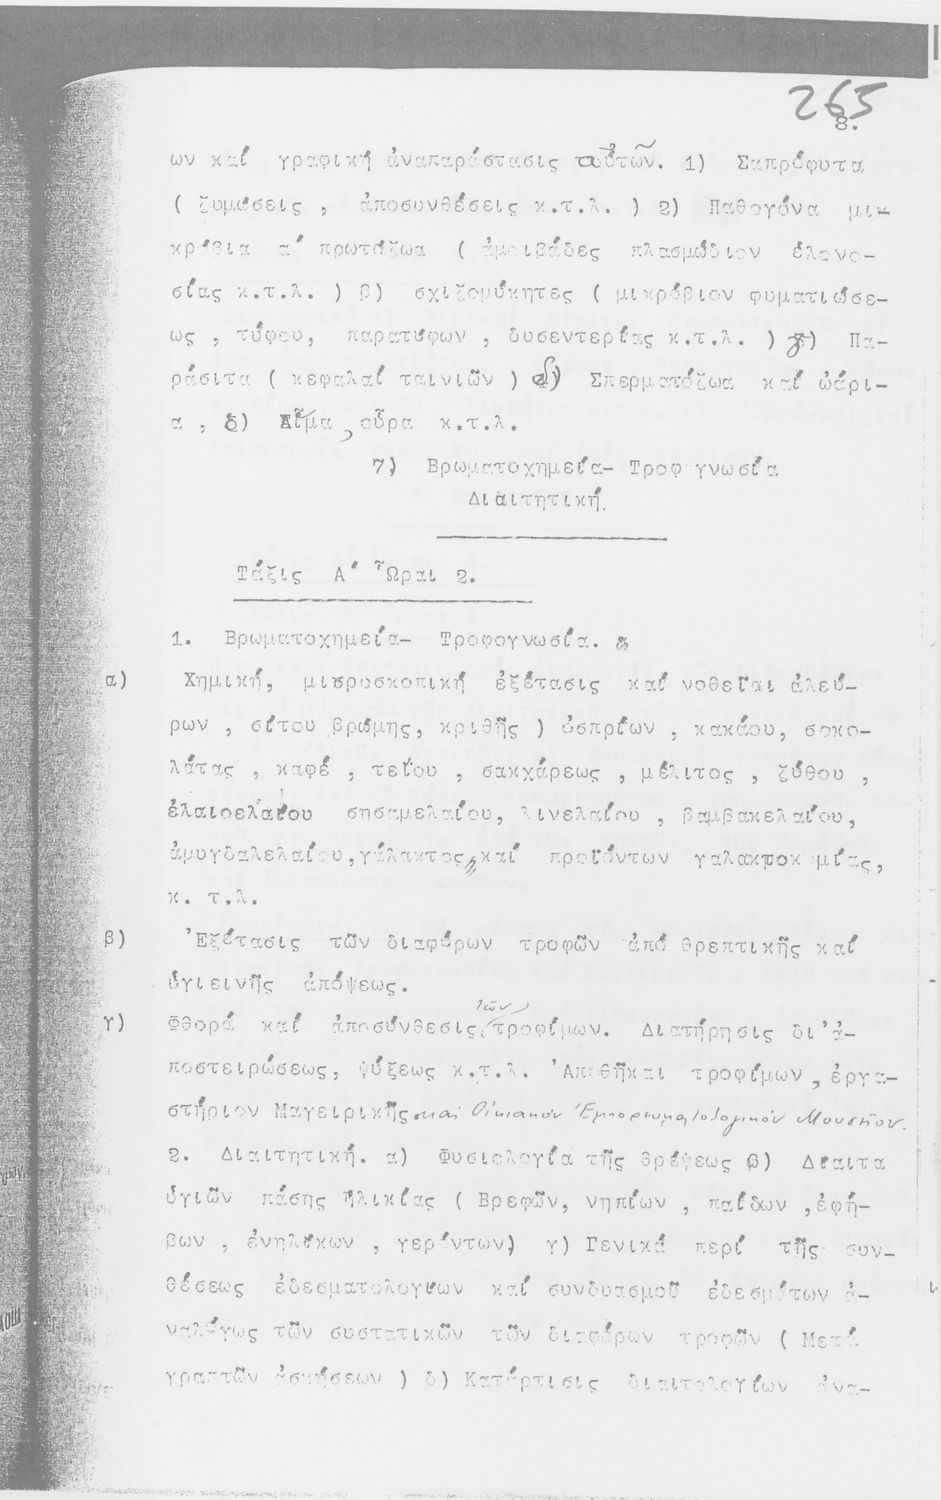 265
8.
ων καί γραφική ἀναπαράστασις αὐτῶν. 1) Σαπρόφυτα
( ζυμώσεις , ἀποσυνθέσεις κ.τ.λ. ) 2) Παθογόνα μι-
κρόβια α' πρωτόζωα ( ἀμοιβάδες πλασμώδιον ἑλονο-
σίας κ.τ.λ. ) β) σχιζομύκητες ( μικρόβιον φυματιώσε-
ως , τύφου, παρατύφων , δυσεντερίας κ.τ.λ. ) γ) Πα-
ράσιτα ( κεφαλαί ταινιῶν ) δ) Σπερματόζωα καί ὠάρι-
α , δ) Αἷμα, οὖρα κ.τ.λ.
7) Βρωματοχημεία- Τροφογνωσία
Διαιτητική.
Τάξις Α' Ὧραι 2.
1. Βρωματοχημεία- Τροφογνωσία.
α) Χημική, μικροσκοπική ἐξέτασις καί νοθεῖαι ἀλεύ-
ρων , σίτου βρώμης, κριθῆς ) ὀσπρίων , κακάου, σοκο-
λάτας , καφέ , τεΐου , σακχάρεως , μέλιτος , ζύθου ,
ἐλαιοελαίου σησαμελαίου, λινελαίου , βαμβακελαίου,
ἀμυγδαλελαίου, γάλακτος καί προϊόντων γαλακτοκομίας,
κ. τ.λ.
β) Ἐξέτασις τῶν διαφόρων τροφῶν ἀπό θρεπτικῆς καί
ὑγιεινῆς ἀπόψεως.
γ) Φθορά καί ἀποσύνθεσις τῶν τροφίμων. Διατήρησις δι' ἀ-
ποστειρώσεως, ψύξεως κ.τ.λ. Ἀποθῆκαι τροφίμων , ἐργα-
στήριον Μαγειρικῆς καί Οἰκιακόν Ἐμπορευματολογικόν Μουσεῖον.
2. Διαιτητική. α) Φυσιολογία τῆς θρέψεως β) Δίαιτα
ὑγιῶν πάσης ἡλικίας ( Βρεφῶν, νηπίων , παίδων , ἐφή-
βων , ἐνηλίκων , γερόντων) γ) Γενικά περί τῆς συν-
θέσεως ἐδεσματολογίων καί συνδυασμοῦ ἐδεσμάτων ἀ-
ναλόγως τῶν συστατικῶν τῶν διαφόρων τροφῶν ( Μετά
γραπτῶν ἀσκήσεων ) δ) Κατάρτισις διαιτολογίων ἀνα-